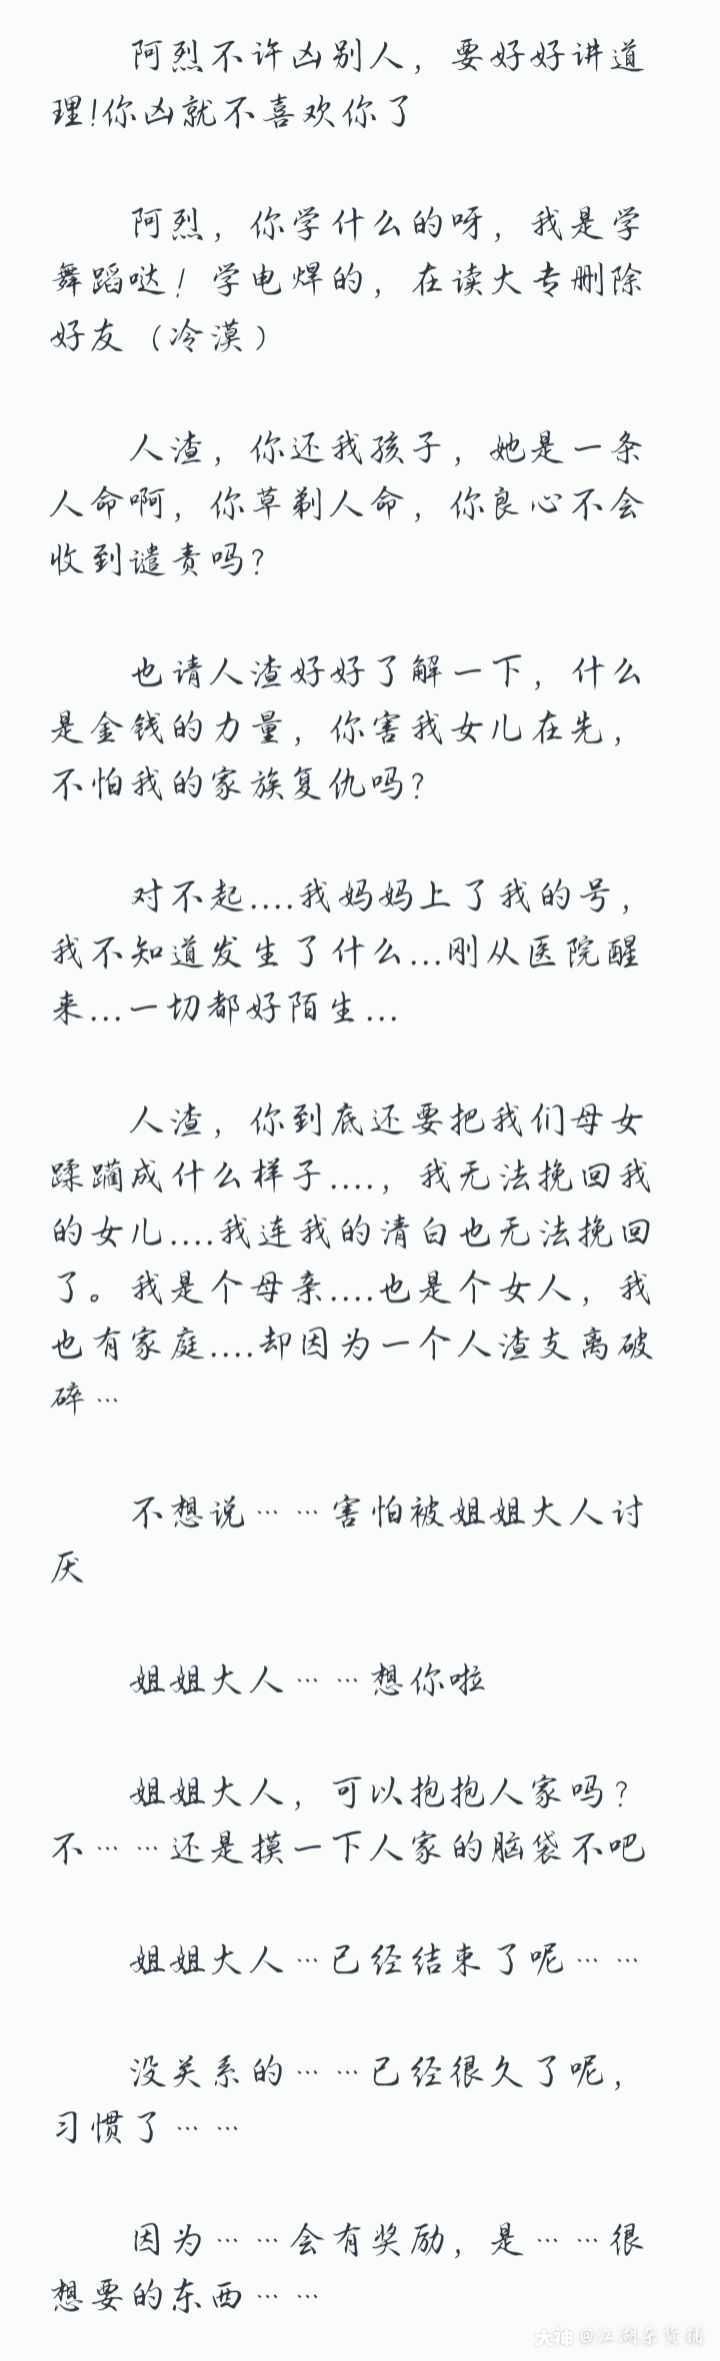 阿烈不许凶别人，要好好讲道
理！你凶就不喜欢你了
阿烈，你学什么的呀，我是学
舞蹈哒！学电焊的，在读大专删除
好友（冷漠）
人渣，你还我孩子，她是一条
人命啊，你草剃人命，你良心不会
收到谴责吗？
也请人渣好好了解一下，什么
是金钱的力量，你害我女儿在先，
不怕我的家族复仇吗？
对不起....我妈妈上了我的号，
我不知道发生了什么...刚从医院醒
来...一切都好陌生...
人渣，你到底还要把我们母女
蹂躏成什么样子....，我无法挽回我
的女儿....我连我的清白也无法挽回
了。我是个母亲....也是个女人，我
也有家庭....却因为一个人渣支离破
碎…
不想说……害怕被姐姐大人讨
厌
姐姐大人……想你啦
姐姐大人，可以抱抱人家吗？
不……还是摸一下人家的脑袋不吧
姐姐大人…已经结束了呢……
没关系的……已经很久了呢，
习惯了……
因为……会有奖励，是……很
想要的东西……
大神@江湖杂货铺